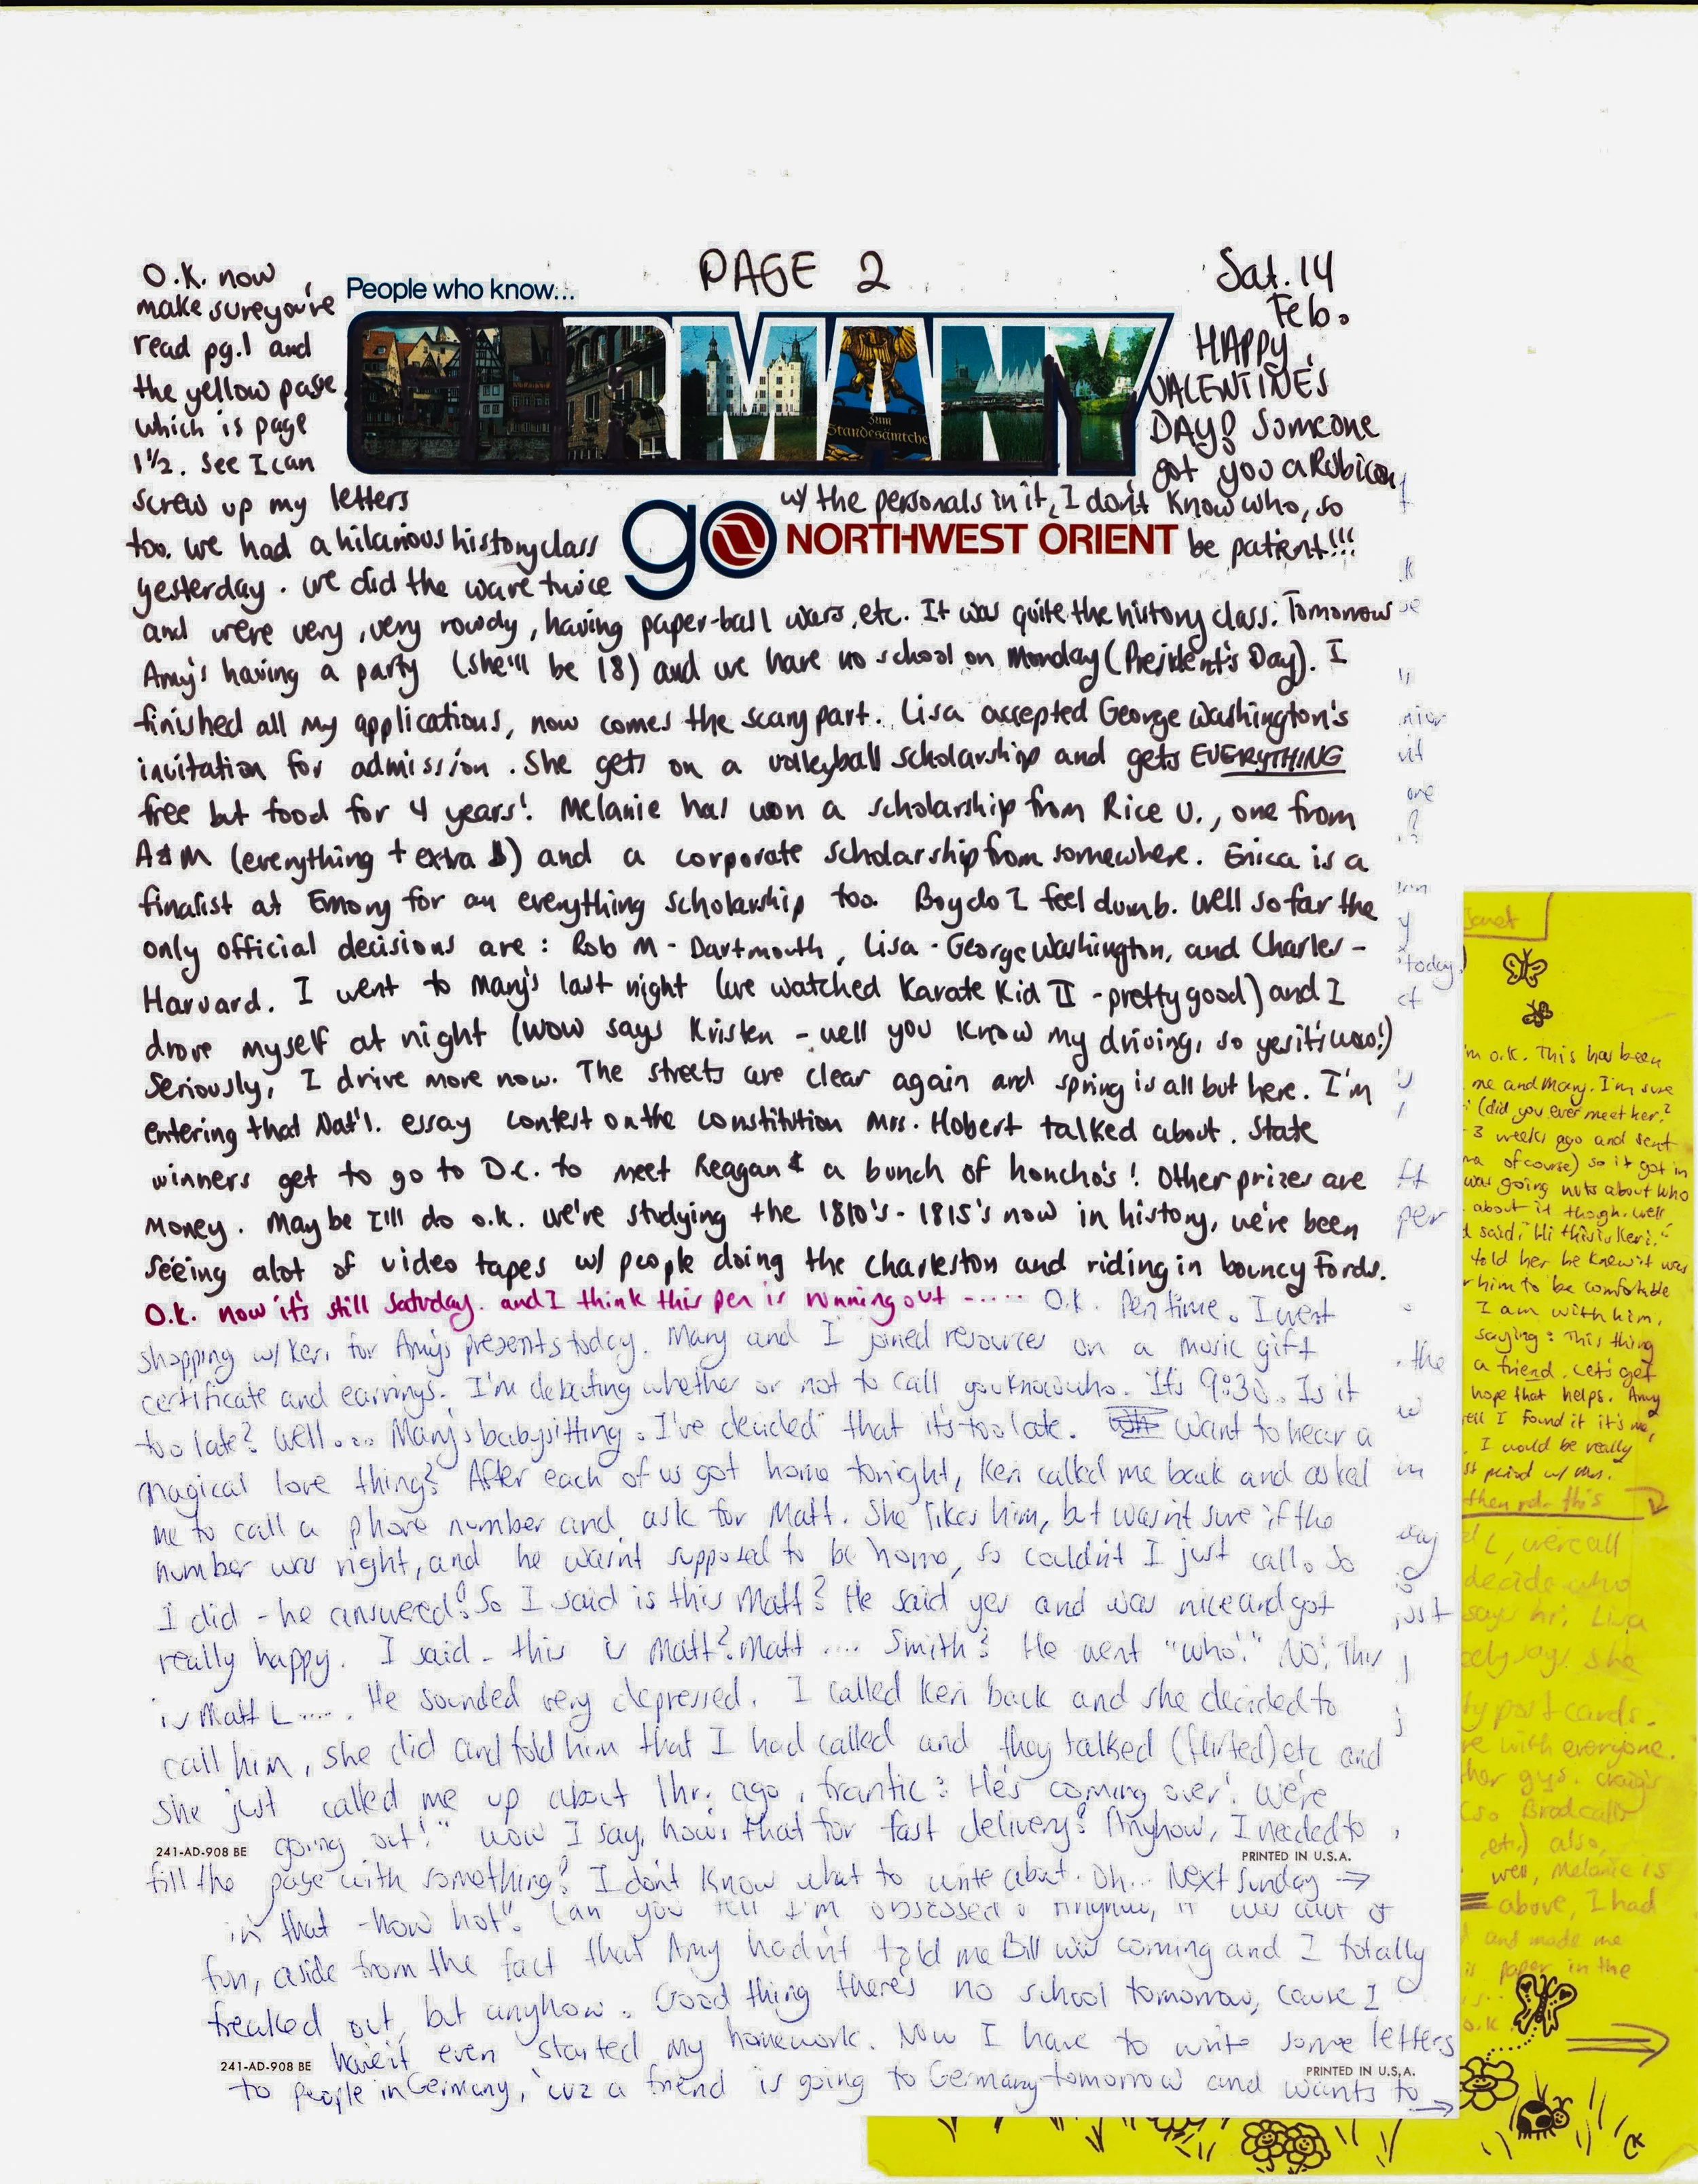 PAGE 2
Sat. 14
Feb.
O.K. now
make sure you've
read pg. 1 and
the yellow page
which is page
1 1/2. See I can
screw up my letters
too. We had a hilarious history class
yesterday. We did the wave twice
People who know...
GERMANY
zum
Standesämtche
go NORTHWEST ORIENT
HAPPY
VALENTINE'S
DAY! Someone
got you a Rubicon
w/ the personals in it, I don't know who, so
be patient!!!
and were very, very rowdy, having paper-ball wars, etc. It was quite the history class. Tomorrow
Amy's having a party (she'll be 18) and we have no school on Monday (President's Day). I
finished all my applications, now comes the scary part. Lisa accepted George Washington's
invitation for admission. She gets on a volleyball scholarship and gets EVERYTHING
free but food for 4 years! Melanie has won a scholarship from Rice U., one from
A&M (everything + extra $) and a corporate scholarship from somewhere. Erica is a
finalist at Emory for an everything scholarship too. Boy do I feel dumb. Well so far the
only official decisions are: Rob M - Dartmouth, Lisa - George Washington, and Charles -
Harvard. I went to Mary's last night (we watched Karate Kid II - pretty good) and I
drove myself at night (wow says Kristen - well you know my driving, so yes it's wow!)
Seriously, I drive more now. The streets are clear again and spring is all but here. I'm
entering that Nat'l. essay contest on the constitution Mrs. Hobert talked about. State
winners get to go to D.C. to meet Reagan & a bunch of honcho's! Other prizes are
money. Maybe I'll do o.k. We're studying the 1810's - 1815's now in history, we've been
seeing alot of video tapes w/ people doing the Charleston and riding in bouncy Fords.
O.K. now it's still Saturday. and I think this pen is running out ----- O.K. Pen time. I went
shopping w/ Keri for Amy's presents today. Mary and I joined resources on a music gift
certificate and earrings. I'm debating whether or not to call youknowwho. It's 9:30. Is it
too late? Well.... Mary's babysitting. I've decided that it's too late. Want to hear a
magical love thing? After each of us got home tonight, Keri called me back and asked
me to call a phone number and ask for Matt. She likes him, but wasn't sure if the
number was right, and he wasn't supposed to be home, so couldn't I just call. So
I did - he answered! So I said is this Matt? He said yes and was nice and got
really happy. I said - this is Matt? Matt .... Smith? He went "who!" NO! This
is Matt L..... He sounded very depressed. I called Keri back and she decided to
call him, she did and told him that I had called and they talked (flirted) etc and
she just called me up about 1hr. ago, frantic: He's coming over! We're
going out!" wow I say, how's that for fast delivery? Anyhow, I needed to
241-AD-908 BE
PRINTED IN U.S.A.
fill the page with something! I don't know what to write about. Oh... Next Sunday →
in that - how hot". Can you tell I'm obsessed? Anyhow, it was alot of
fun, aside from the fact that Amy hadn't told me Bill was coming and I totally
freaked out, but anyhow. Good thing there's no school tomorrow, cause I
haven't even started my homework. Now I have to write some letters
241-AD-908 BE
PRINTED IN U.S.A.
to people in Germany, 'cuz a friend is going to Germany tomorrow and wants to →
today
per
the
just
Janet
'm o.k. This has been
me and Mary. I'm sure
(did you ever meet her?
3 weeks ago and sent
of course) so it got in
was going nuts about who
about it though. Well
said, "Hi this is Keri."
told her he knew it was
him to be comfortable
I am with him.
saying: This thing
a friend. Let's get
hope that helps. Amy
I found it it's me,
I would be really
then rd. this
L, we're all
decide who
says hi, Lisa
says she
post cards.
with everyone.
guys. Craig's
(so Brad calls
etc.) also,
well, Melanie is
above, I had
and made me
paper in the
o.k